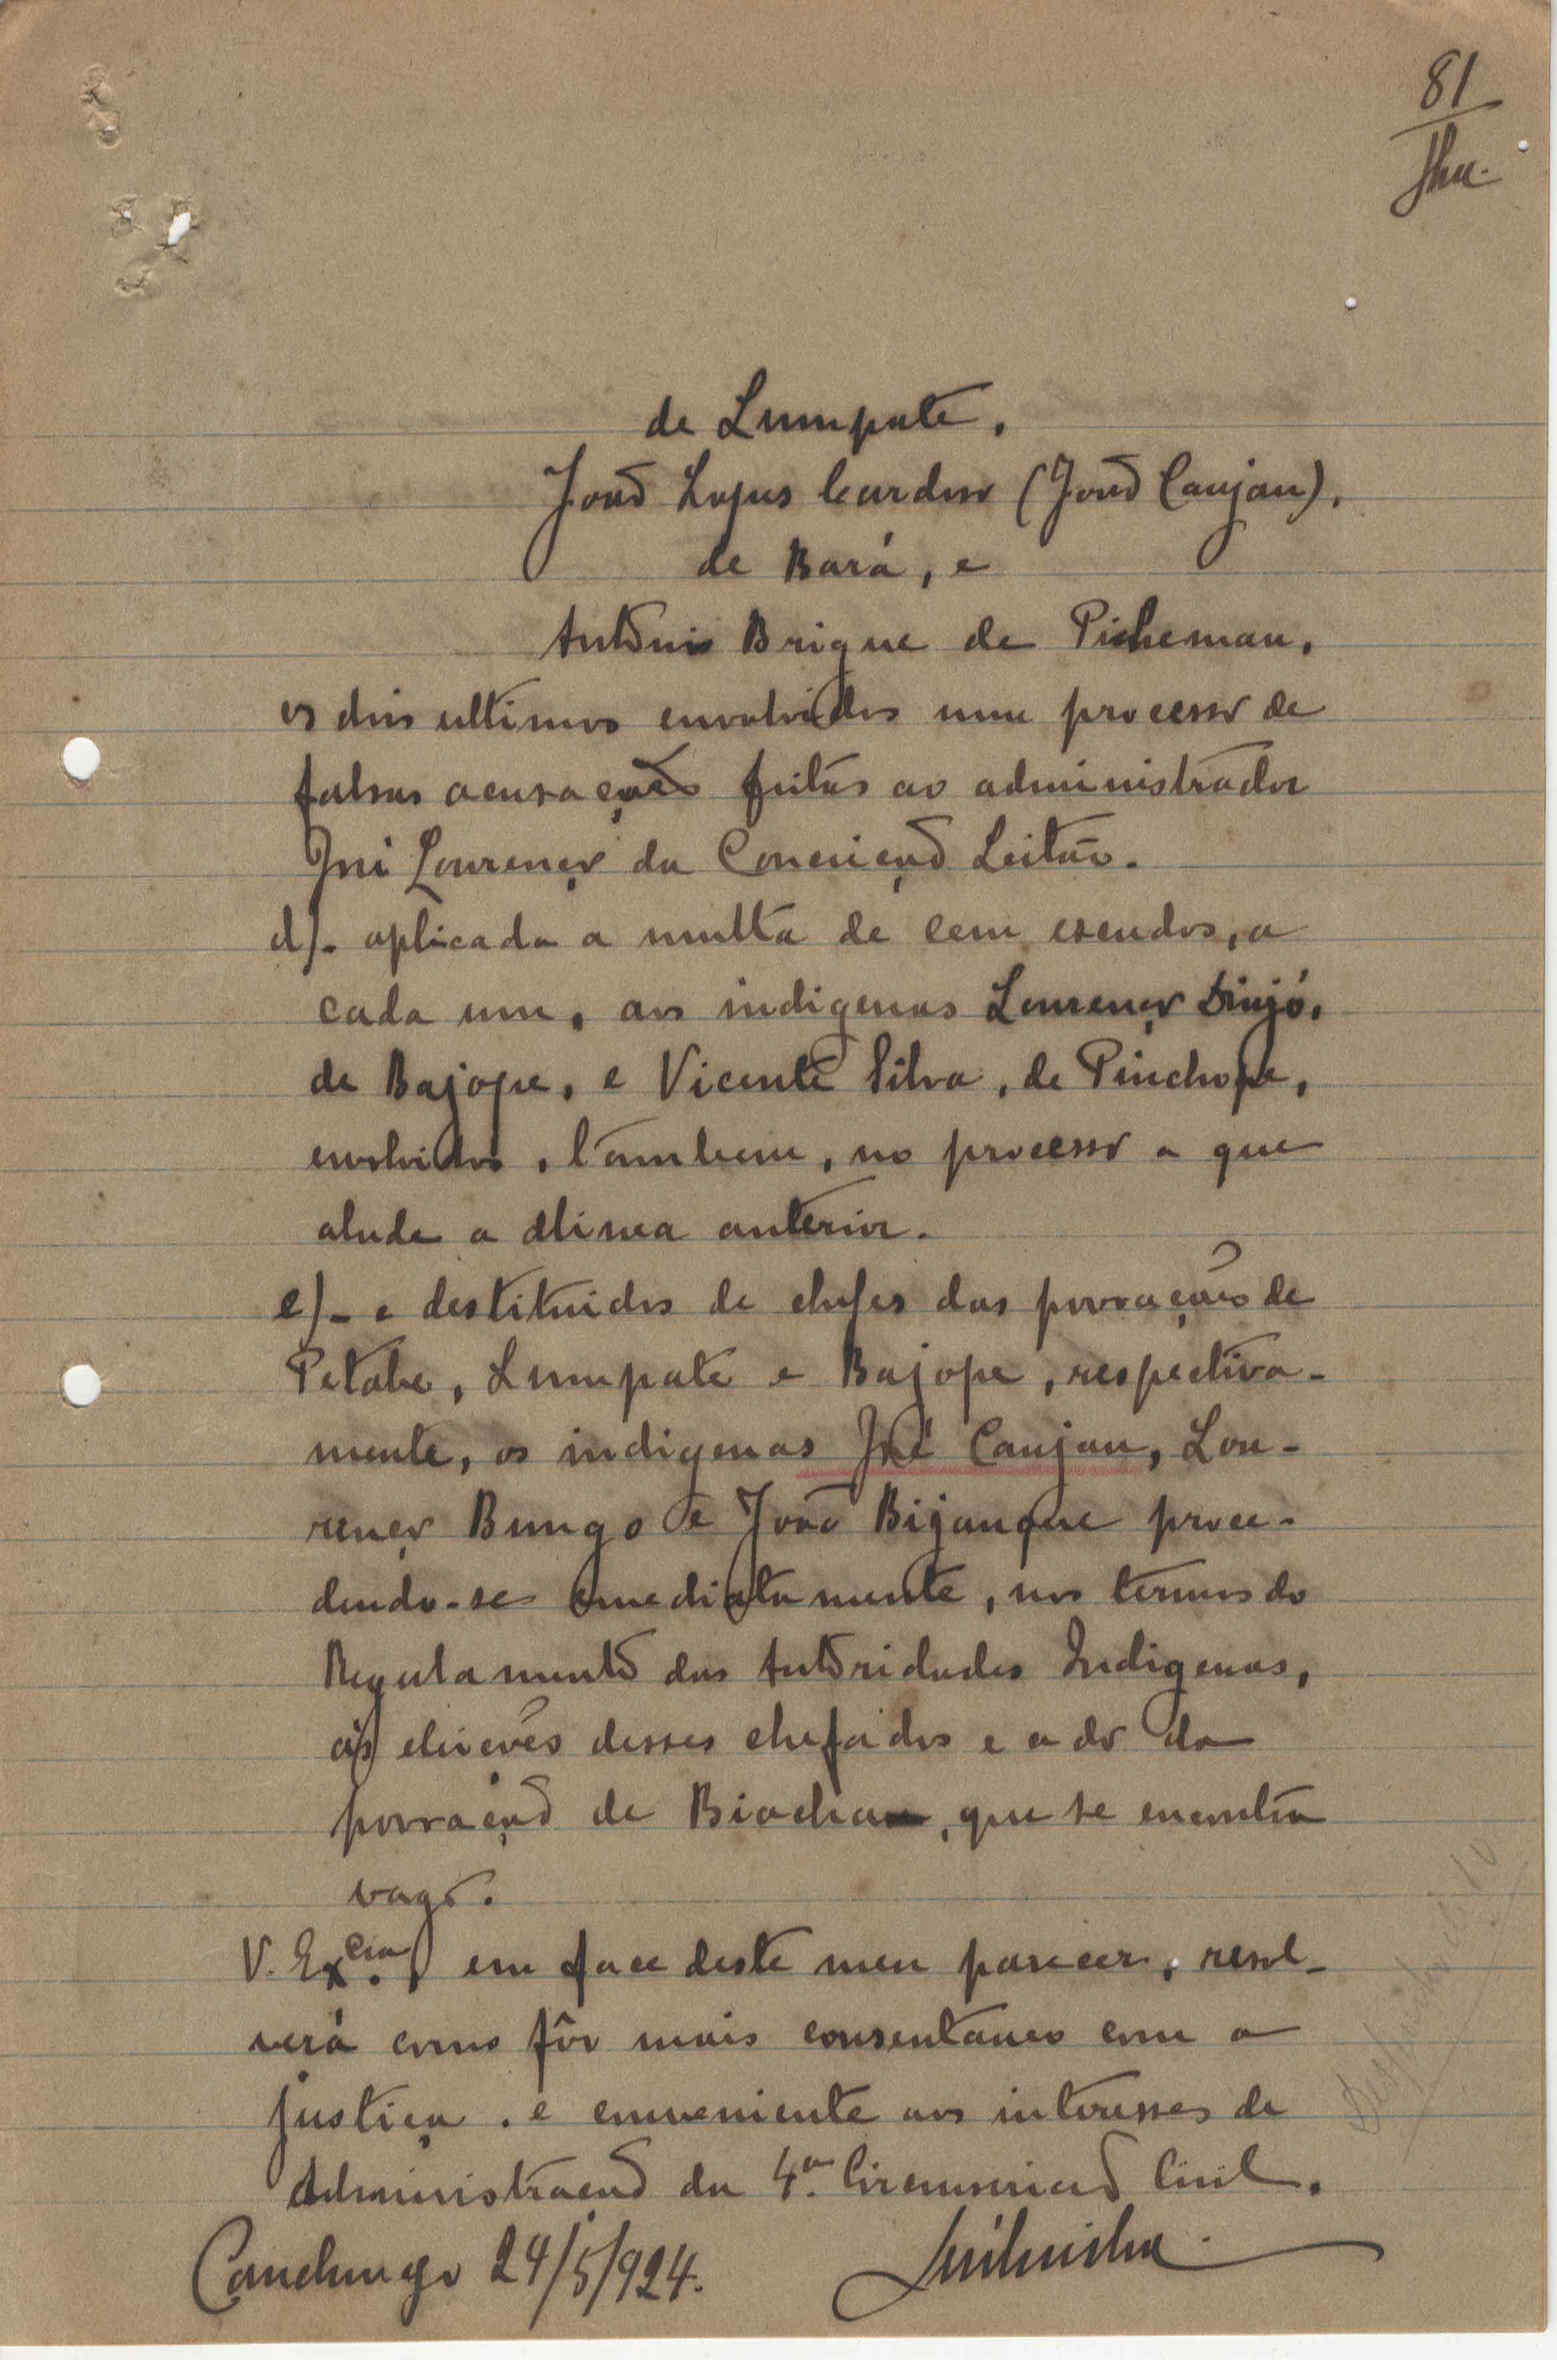 81
de Lumpate,
João Lopes Cardoso (João Canjan),
de Bará, e
António Brique de Picheman,
os dois ultimos envolvidos num processo de
falsas acusações feitas ao administrador
José Lourenço da Conceição Leitão.
d)- aplicada a multa de cem escudos, a
cada um, aos indigenas Lourenço Dinjó,
de Bajope, e Vicente Silva, de Pinchope,
envolvidos, tambem, no processo a que
alude a alinea anterior.
e)- e destituidos de chefes das povoações de
Petabe, Lumpate e Bajope, respectiva-
mente, os indigenas José Canjan, Lou-
renço Bungo e João Bijanque proce-
dendo-se imediatamente, nos termos do
Regulamento das Autoridades Indigenas,
ás eleições desses chefados e a do da
povoação de Biacha, que se encontra
vago.
V. Ex.cia, em face deste meu parecer, resol-
verá como fôr mais consentaneo com a
justiça. e conveniente aos interesses de
Administração da 4.a Circunscrição Civil.
Canchungo 24/5/924.